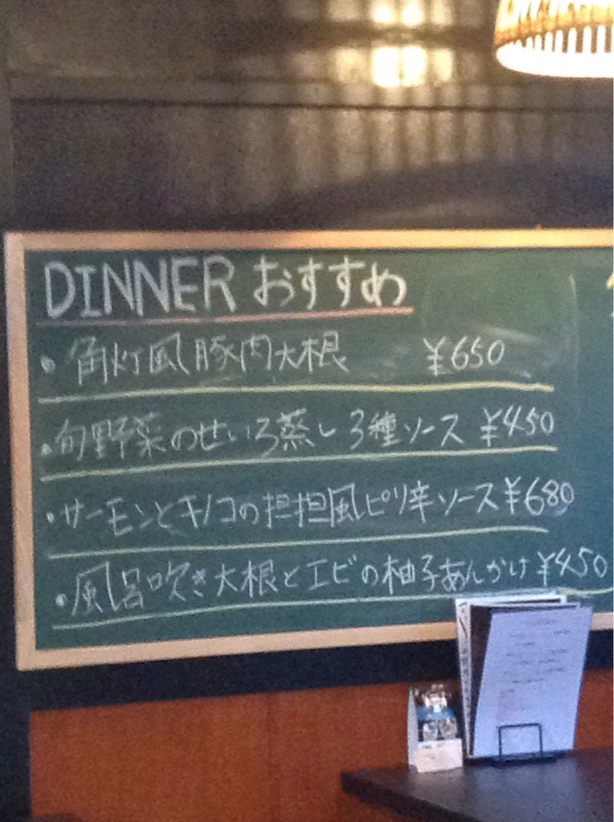 DINNER おすすめ
・角灯風豚肉大根 ¥650
・旬野菜のせいろ蒸し3種ソース ¥450
・サーモンとキノコの担担風ピリ辛ソース¥680
・風呂吹き大根とエビの柚子あんかけ¥450